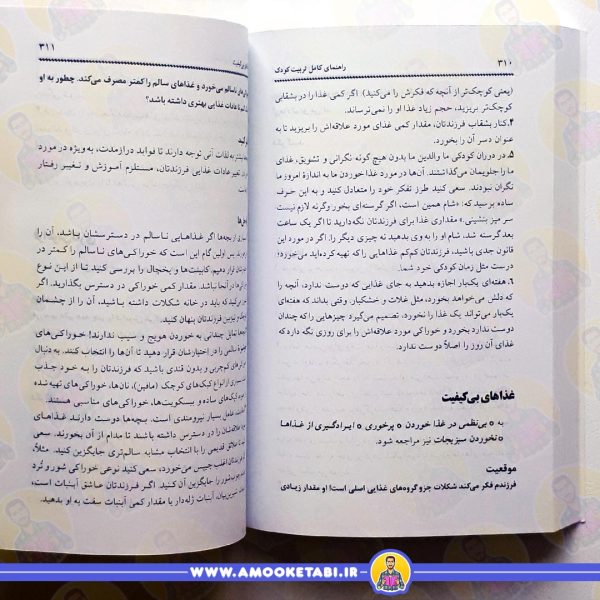 ۳۱۰
راهنمای کامل تربیت کودک
(یعنی کوچک‌تر از آنچه که فکرش را می‌کنید) اگر کمی غذا را در بشقابی
کوچک‌تر بریزید، حجم زیاد غذا او را نمی‌ترساند.
۴.کنار بشقاب فرزندتان، مقدار کمی غذای مورد علاقه‌اش را بریزید تا به
عنوان دسر آن را بخورد.
۵. در دوران کودکی ما والدین ما بدون هیچ گونه نگرانی و تشویق، غذای
ما را جلویمان می‌گذاشتند. آن‌ها در مورد غذا خوردن ما به اندازهٔ امروز ما
نگران نبودند. سعی کنید طرز تفکر خود را متعادل کنید و به این حرف
ساده برسید که: «شام همین است، اگر گرسنه‌ای بخور وگرنه لازم نیست
سر میز بنشینی.» مقداری غذا برای فرزندتان نگه‌دارید تا اگر یک ساعت
بعد گرسنه شد، شام او را به وی بدهید نه چیزی دیگر را. اگر در مورد این
قانون جدی باشید، فرزندتان کم‌کم غذاهایی را که تهیه کرده‌اید می‌خورد؛
درست مثل زمان کودکی خود شما.
۶. هفته‌ای یک‌بار اجازه بدهید به جای غذایی که دوست ندارد، آنچه را
که دلش می‌خواهد بخورد، مثل غلات و خشکبار. وقتی بداند که هفته‌ای
یک‌بار می‌تواند یک غذا را نخورد، تصمیم می‌گیرد چیزهایی را که چندان
دوست ندارد بخورد و خوراکی مورد علاقه‌اش را برای روزی نگه دارد که
غذای آن روز را اصلاً دوست ندارد.
غذاهای بی‌کیفیت
به • بی‌نظمی در غذا خوردن • پرخوری • ایرادگیری از غذاها
• نخوردن سبزیجات نیز مراجعه شود.
موقعیت
فرزندم فکر می‌کند شکلات جزو گروه‌های غذایی اصلی است! او مقدار زیادی
۳۱۱
ناسالم می‌خورد و غذاهای سالم را کمتر مصرف می‌کند. چطور به او
عادات غذایی بهتری داشته باشد؟
بیشتر به لذات آنی توجه دارند تا فواید درازمدت، به‌ویژه در مورد
تغییر عادات غذایی فرزندتان، مستلزم آموزش و تغییر رفتار
از بچه‌ها اگر غذاهایی ناسالم در دسترسشان باشد، آن را
اولین گام این است که خوراکی‌های ناسالم را کمتر در
قرار دهیم. کابینت‌ها و یخچال را بررسی کنید تا از این نوع
نباشد. مقدار کمی خوراکی در دسترس بگذارید. اگر
که باید در خانه شکلات داشته باشید، آن را از چشمان
فرزندتان پنهان کنید.
تمایل چندانی به خوردن هویج و سیب ندارند! خوراکی‌های
سالمی را در اختیارشان قرار دهید تا آن‌ها را انتخاب کنند. به دنبال
چربی و بدون قندی باشید که بچه‌ها را به خود جذب
از انواع کیک‌های کوچک (مافین)، نان‌ها، خوراکی‌های تهیه شده
کیک‌های ساده و بیسکویت‌ها، خوراکی‌های مناسبی هستند.
عامل بسیار نیرومندی است. بچه‌ها دوست دارند غذاهای
علاقه‌شان را در دسترس داشته باشند تا مدام از آن بخورند. سعی
علائق قدیمی را با انتخاب مشابه سالم‌تری جایگزین کنید. مثلاً،
فرزندتان اغلب چیپس می‌خورد، سعی کنید نوعی خوراکی شور و تُرد
را جایگزین آن کنید. اگر فرزندتان عاشق آبنبات است،
شیرین‌بیان، آبنبات ژله‌دار یا مقدار کمی آبنبات سفت به او بدهید.
WWW.AMOOKETABI.IR